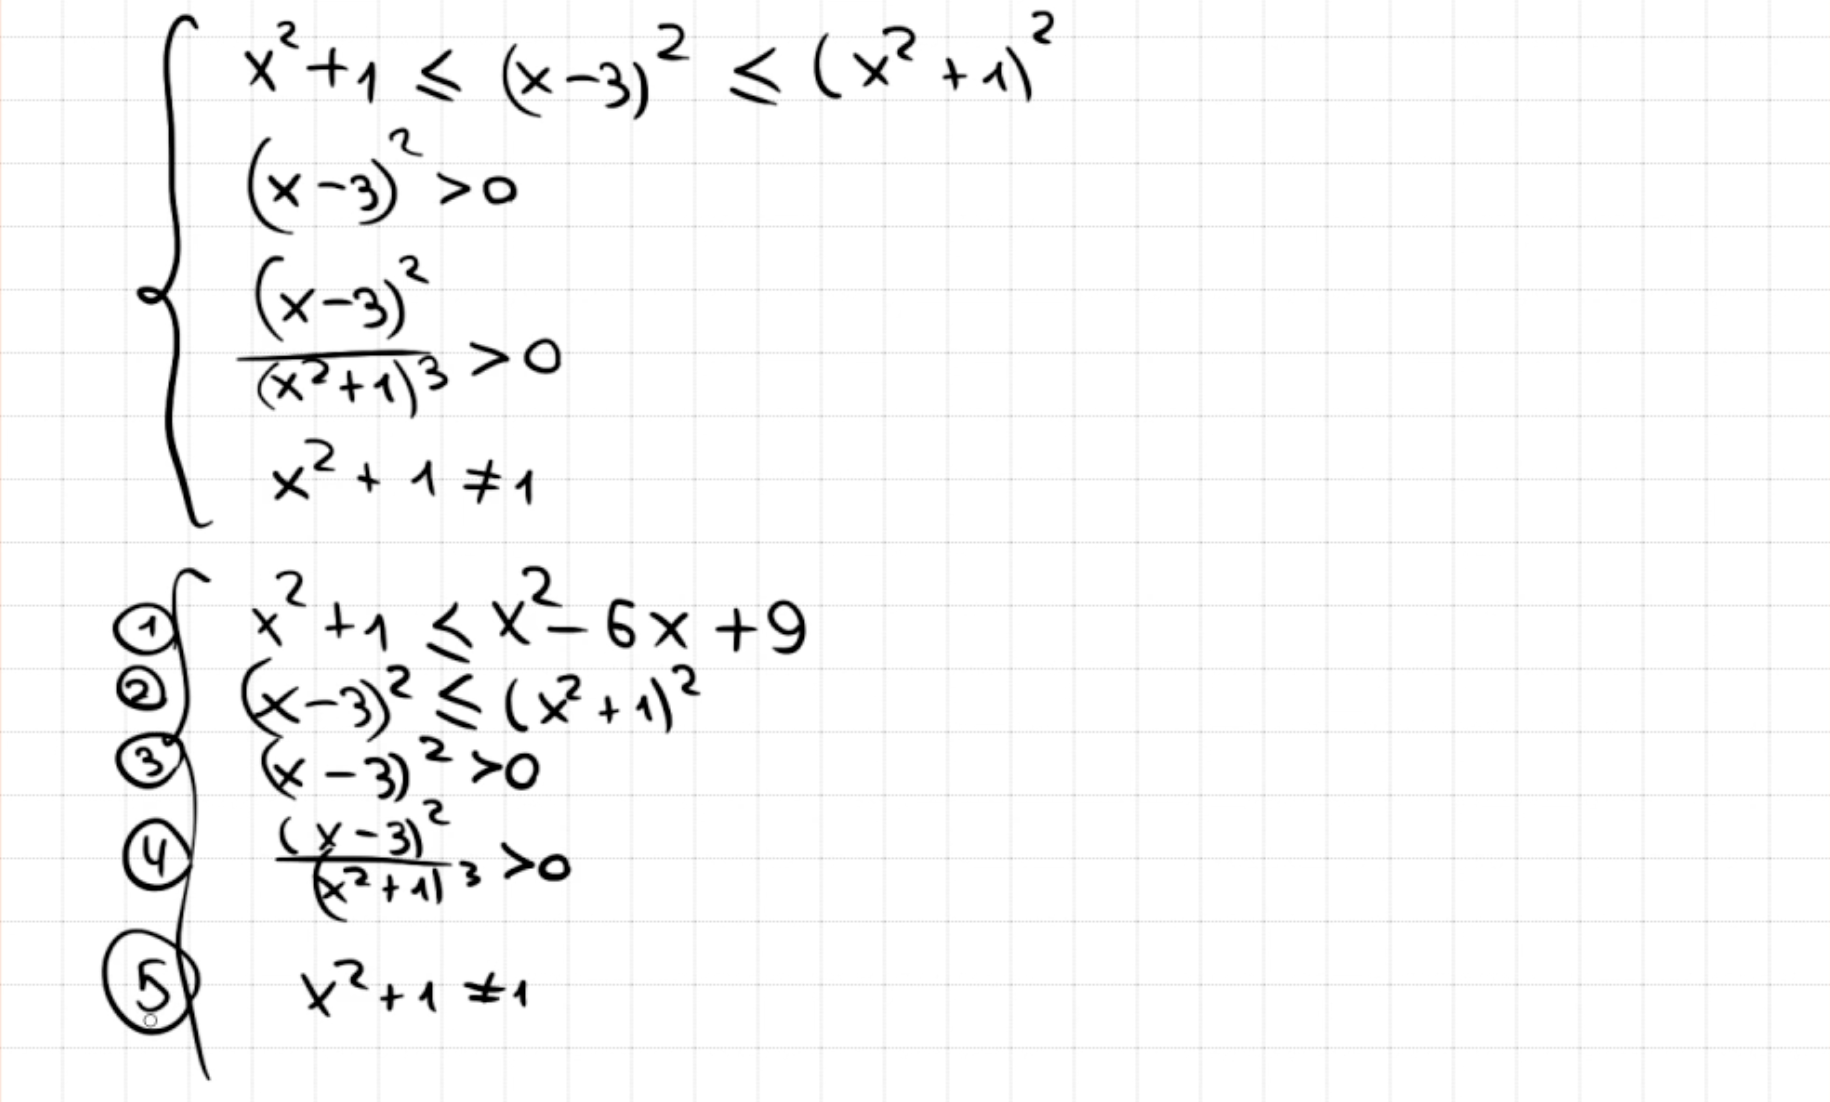 x² + 1 ≤ (x – 3)² ≤ (x² + 1)²
(x – 3)² > 0
(x – 3)²
/ (x² + 1)³ > 0
x² + 1 ≠ 1
① x² + 1 ≤ x² – 6x + 9
② (x – 3)² ≤ (x² + 1)²
③ (x – 3)² > 0
④ (x – 3)² / (x² + 1)³ > 0
⑤ x² + 1 ≠ 1